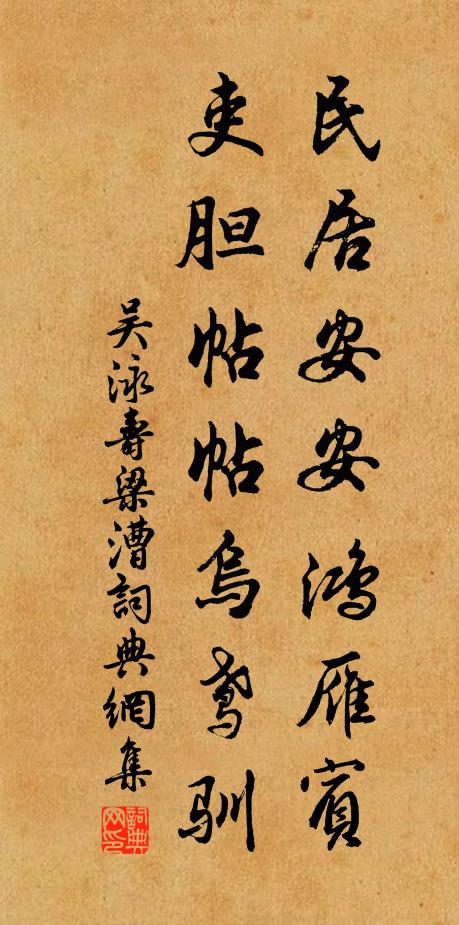 民居安安鸿雁宾
吏胆帖帖乌鸢驯
吴泳寿梁漕詞典網集
詞典网印